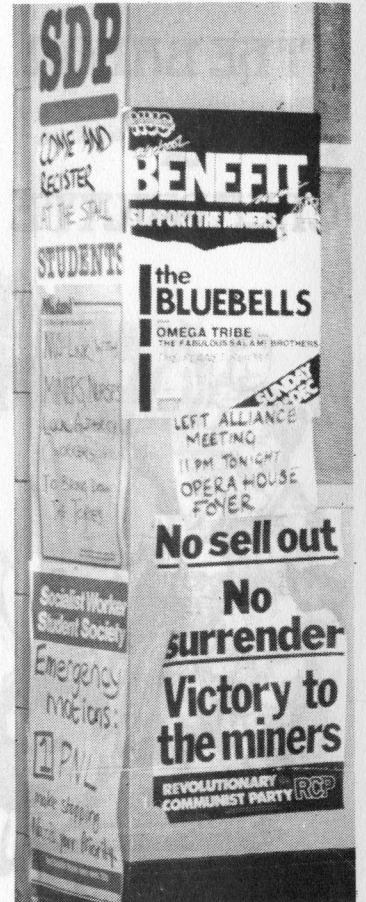 SDP
COME AND
REGISTER
AT THE STALL
STUDENTS
Militant
NUS LINK WITH
MINERS, NURSES
LOCAL AUTHORITY
WORKERS
TO BRING DOWN
THE TORIES
Socialist Worker
Student Society
Emergency
motions:
1 PNL
make stopping
Nazis your Priority
NUS
BENEFIT
SUPPORT THE MINERS
the
BLUEBELLS
OMEGA TRIBE
THE FABULOUS SALAMI BROTHERS
SUNDAY
DEC
LEFT ALLIANCE
MEETING
11 PM TONIGHT
OPERA HOUSE
FOYER
No sell out
No
surrender
Victory to
the miners
REVOLUTIONARY
COMMUNIST PARTY RCP